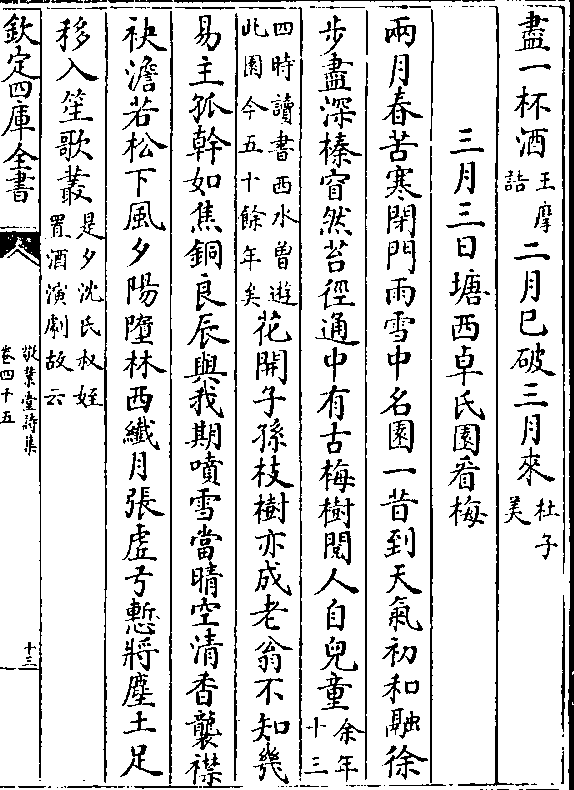 盡一杯酒王摩詰二月已破三月來杜子美
三月三日塘西卓氏園看梅
兩月春苦寒閉門雨雪中名園一昔到天氣初和融徐
步盡深榛窅然苔徑通中有古梅樹閱人自兒童余年十三
四時讀書西水曾遊此園今五十餘年矣花開子孫枝樹亦成老翁不知幾
易主孤幹如焦銅良辰與我期噴雪當晴空清香襲襟
袂澹若松下風夕陽墮林西纖月張虛弓慙將塵土足
移入笙歌叢是夕沈氏叔姪置酒演劇故云
欽定四庫全書
敬業堂詩集
卷四十五
十三